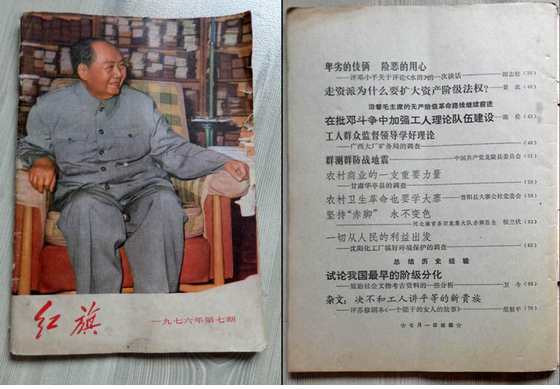 红旗
一九七六年第七期
卑劣的伎俩 险恶的用心
——评邓小平关于评论《水浒》的一次谈话
走资派为什么要扩大资产阶级法权?
沿着毛主席的无产阶级革命路线继续前进
在批邓斗争中加强工人理论队伍建设
工人群众监督领导学好理论
——广西大厂矿务局的调查
群测群防战地震 中国共产党龙陵县委员会
农村商业的一支重要力量
——甘肃华亭县的调查
农村卫生革命也要学大寨 昔阳县大寨公社党委会
坚持“赤脚” 永不变色
一切从人民的利益出发
——沈阳化工厂搞好环境保护的调查
总结历史经验
试论我国最早的阶级分化
——原始社会文物考古资料的一些分析 卫今
杂文:决不和工人讲平等的新贵族
——评苏修剧本《一个能干的女人的故事》
☆七月一日出版☆